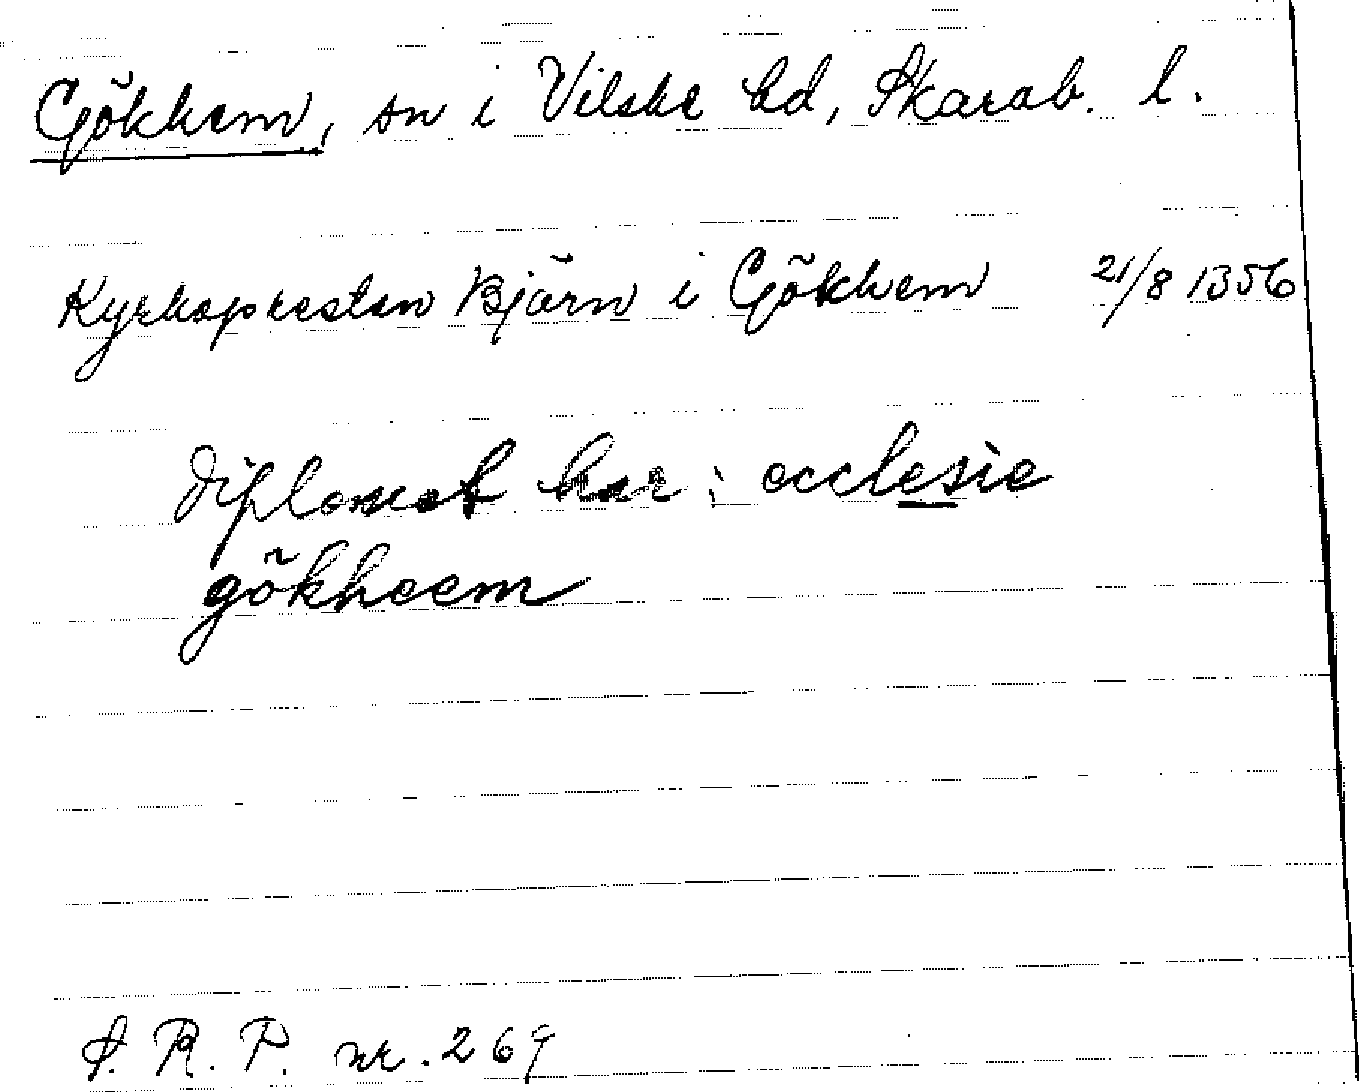 Gökhem, sn i Vilske hd, Skarab. l.
Kyrkopresten Björn i Gökhem 21/8 1356
diplomet har: ecclesie
gökheem
S. R. P. nr. 269